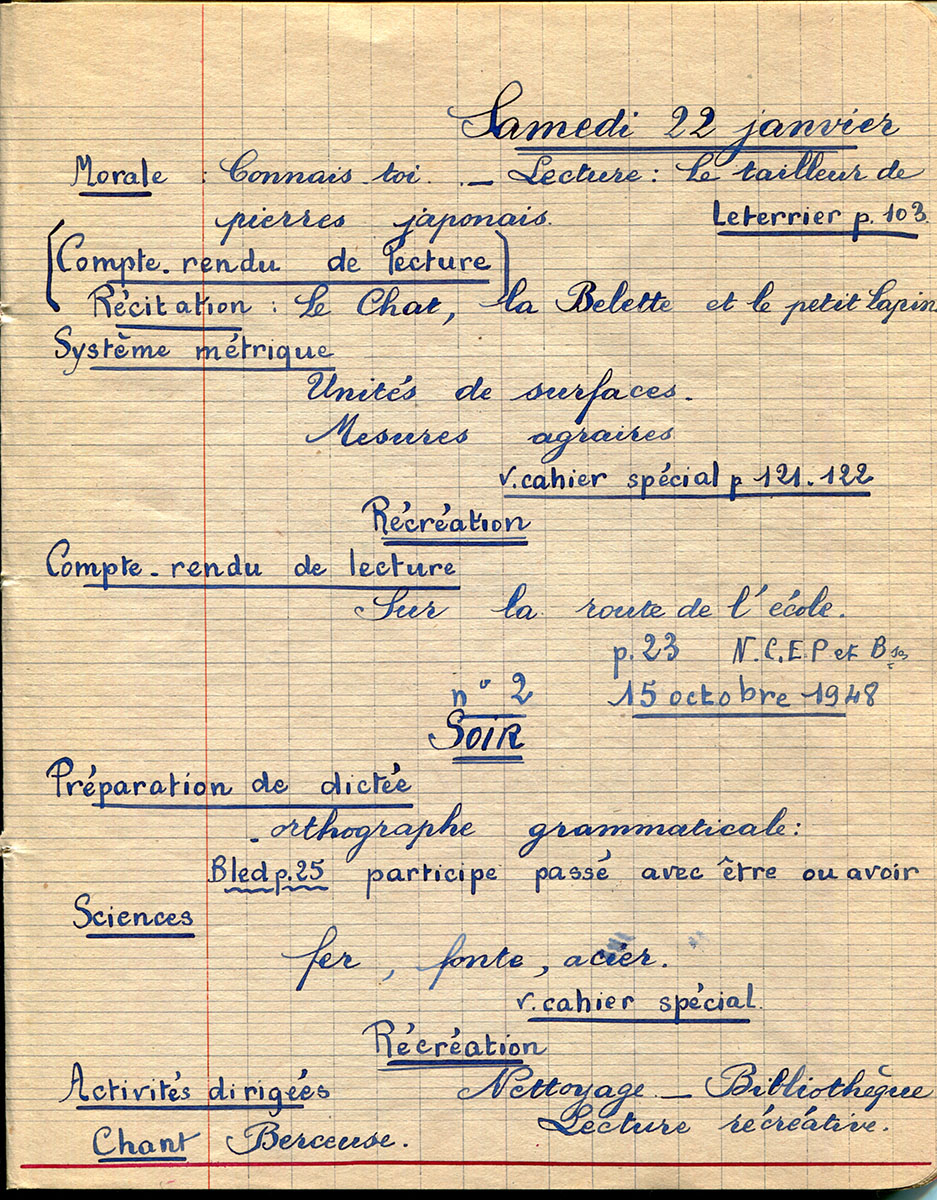 Samedi 22 janvier
Morale : Connais toi. _ Lecture : Le tailleur de
pierres japonais. Leterrier p. 103
(Compte-rendu de lecture)
Récitation : Le Chat, la Belette et le petit lapin
Système métrique
Unités de surfaces.
Mesures agraires
v. cahier spécial p 121.122
Récréation
Compte-rendu de lecture
Sur la route de l'école.
p.23 N.C.E.P et B
n° 2 15 octobre 1948
Soir
Préparation de dictée
. orthographe grammaticale :
Bled p.25 participe passé avec être ou avoir
Sciences
fer, fonte, acier.
v. cahier spécial.
Récréation
Activités dirigées Nettoyage _ Bibliothèque
Lecture récréative.
Chant Berceuse.